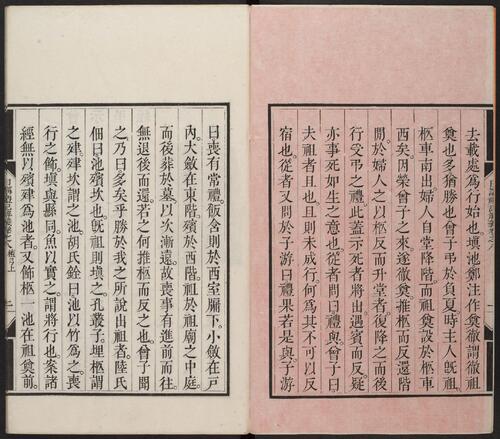 去載處爲行始也填池鄭注作奠徹謂徹祖
奠也多猶勝也曾子弔於負夏時主人旣祖
柩車南出婦人自堂降階而祖奠設於柩車
西矣因榮曾子之來遂徹奠推柩而反還階
閒於婦人之以柩反而升堂者復降之而後
行受弔之禮此蓋示死者將出遇賓而反疑
亦事死如生之意也從者問曰禮與曾子曰
夫祖者且也且則未成行何爲其不可以反
宿也從者又問於子游曰禮果若是與子游
曰喪有常禮飯含則於西室牖下。小斂在戶
內。大斂在東階。殯於西階。祖於祖廟之中庭。
而後葬於墓。以次漸遠。故喪事有進前而往。
無退後而還。若之何推柩而反之也。曾子聞
之乃曰多矣乎勝於我之所說出祖者。陸氏
佃曰池殯坎也。旣祖則填之。孔叢子。埋柩謂
之肂肂坎謂之池。胡氏銓曰池以竹爲之。喪
行之飾。填與縣同。魚以實之。謂將行也。案諸
經無以殯肂爲池者。又飾柩一池在祖奠前。